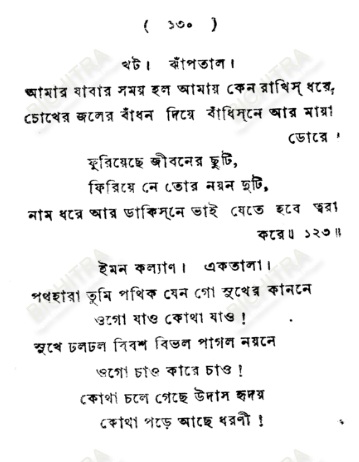 ( ১৩০ )
খট। ঝাঁপতাল।
আমার যাবার সময় হল আমায় কেন রাখিস্ ধরে,
চোখের জলের বাঁধন দিয়ে বাঁধিস্‌নে আর মায়া
ডোরে।
ফুরিয়েছে জীবনের ছুটি,
ফিরিয়ে নে তোর নয়ন দুটি,
নাম ধরে আর ডাকিস্‌নে ভাই যেতে হবে ত্বরা
করে॥ ১২৩॥
ইমন কল্যাণ। একতালা।
পথহারা তুমি পথিক যেন গো সুখের কাননে
ওগো যাও কোথা যাও!
সুখে ঢলঢল বিবশ বিভল পাগল নয়নে
ওগো চাও কারে চাও!
কোথা চলে গেছে উদাস হৃদয়
কোথা পড়ে আছে ধরণী!